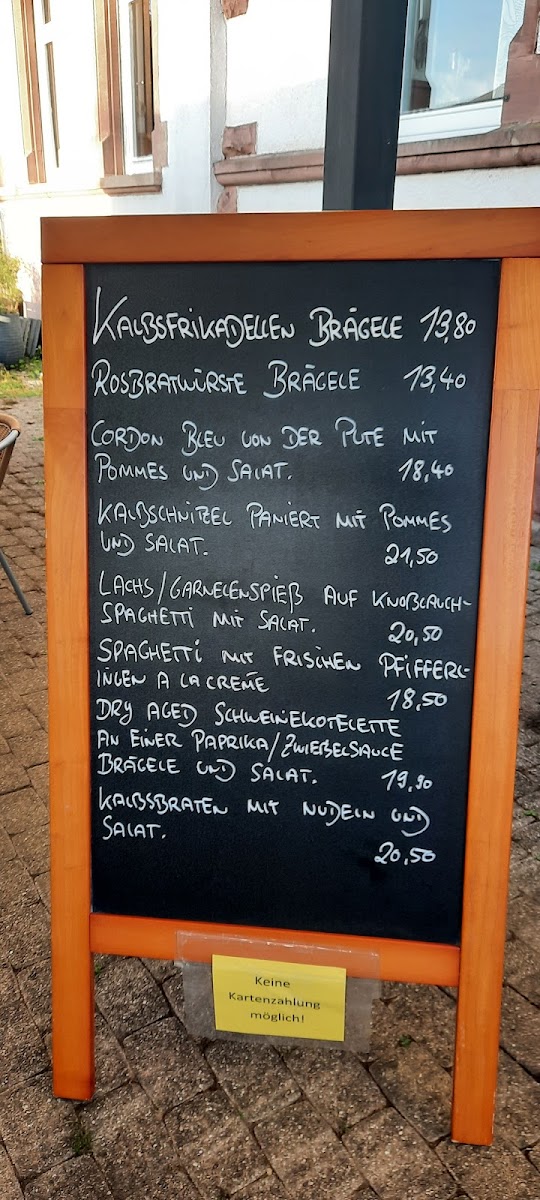 KALBSFRIKADELLEN BRÄGELE 13,80
ROSBRATWÜRSTE BRÄGELE 13,40
CORDON BLEU VON DER PUTE MIT
POMMES UND SALAT. 18,40
KALBSCHNITZEL PANIERT MIT POMMES
UND SALAT. 21,50
LACHS/GARNELENSPIEß AUF KNOBLAUCH-
SPAGHETTI MIT SALAT. 20,50
SPAGHETTI MIT FRISCHEN PFIFFERL-
INGEN A LA CREME 18,50
DRY AGED SCHWEINEKOTELETTE
AN EINER PAPRIKA/ZWIEBELSAUCE
BRÄGELE UND SALAT. 19,90
KALBSBRATEN MIT NUDELN UND
SALAT. 20,50
Keine
Kartenzahlung
möglich!